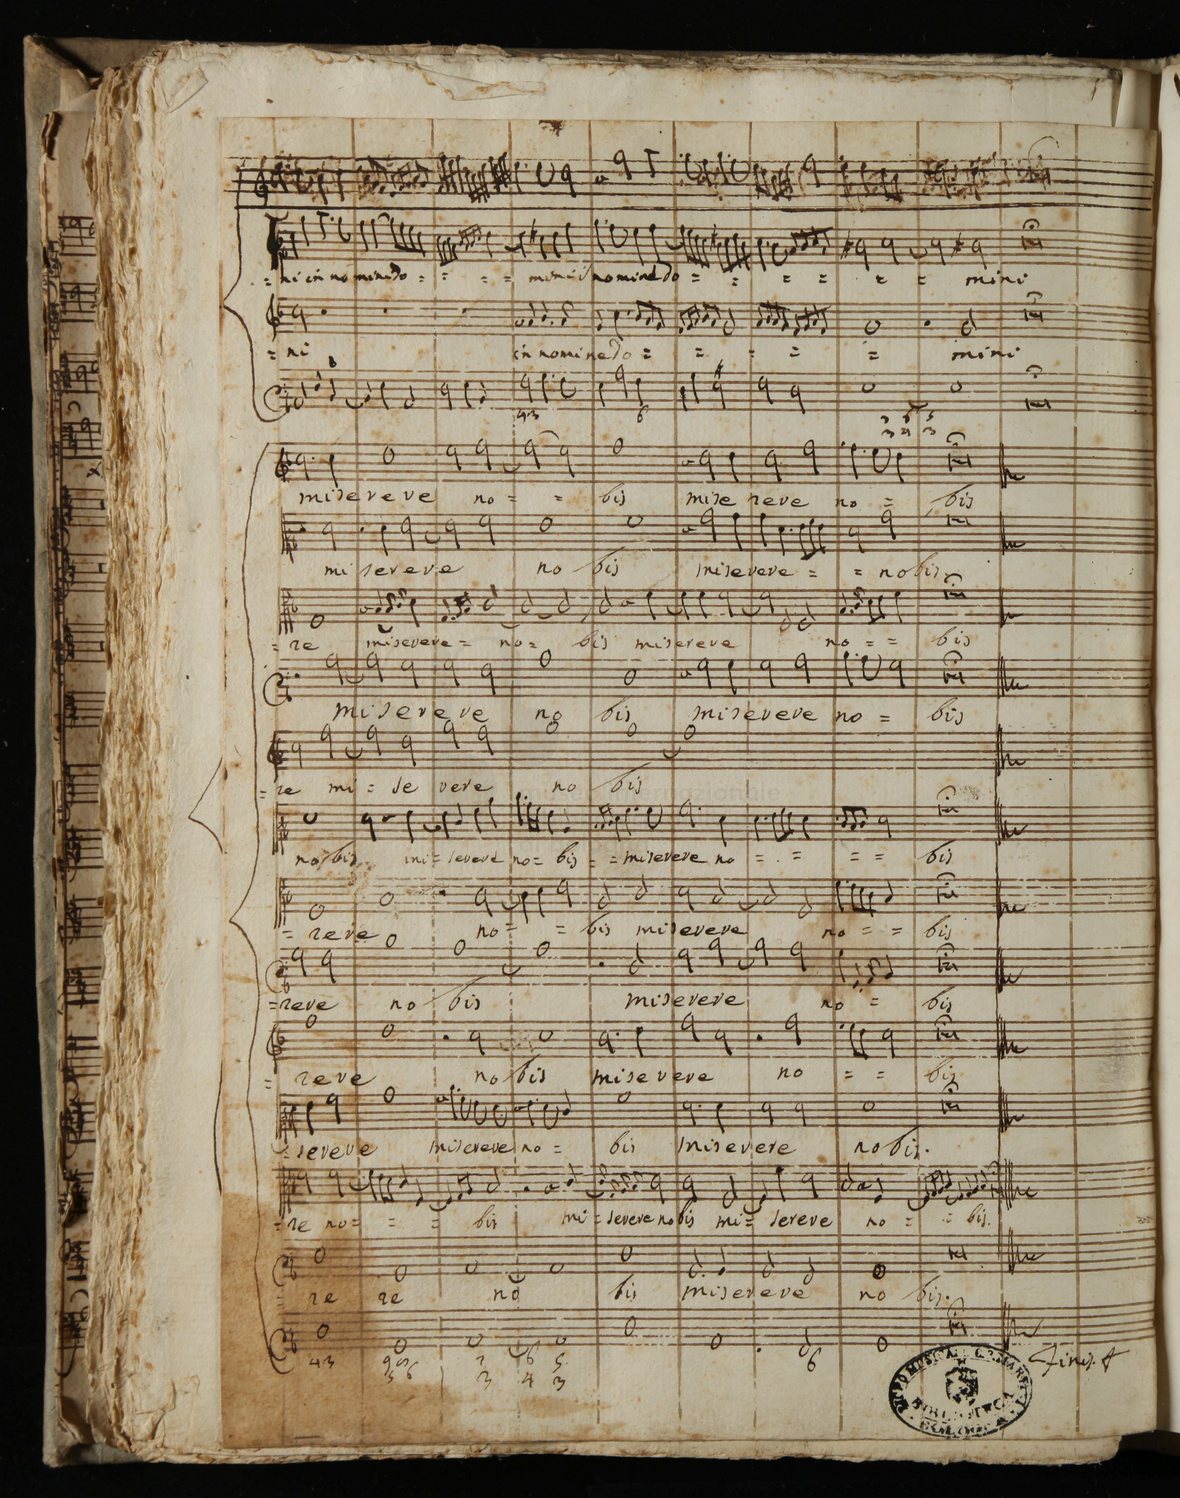 = ni in nomine do = = = = mini in nomine do = = = = = = mini
= ni in nomine do = = = = = mini
43 6
miserere no = = bis miserere no = bis
miserere no bis miserere = = nobis
= re miserere = no = bis miserere no = = bis
miserere no bis miserere no = bis
= re mi = se rere no bis
internazionale
no bis mi = serere no = bis = = miserere no = = = = bis
= rere no = = bis miserere no = = bis
= rere no bis miserere no = bis
= rere no bis miserere no = = bis
= serere miserere no = bis miserere no bis.
= re no = = = bis mi = serere nobis mi = serere no = = bis.
= re re no bis miserere no bis.
43 6
Finis
BIBLIOTECA
BOLOGNA